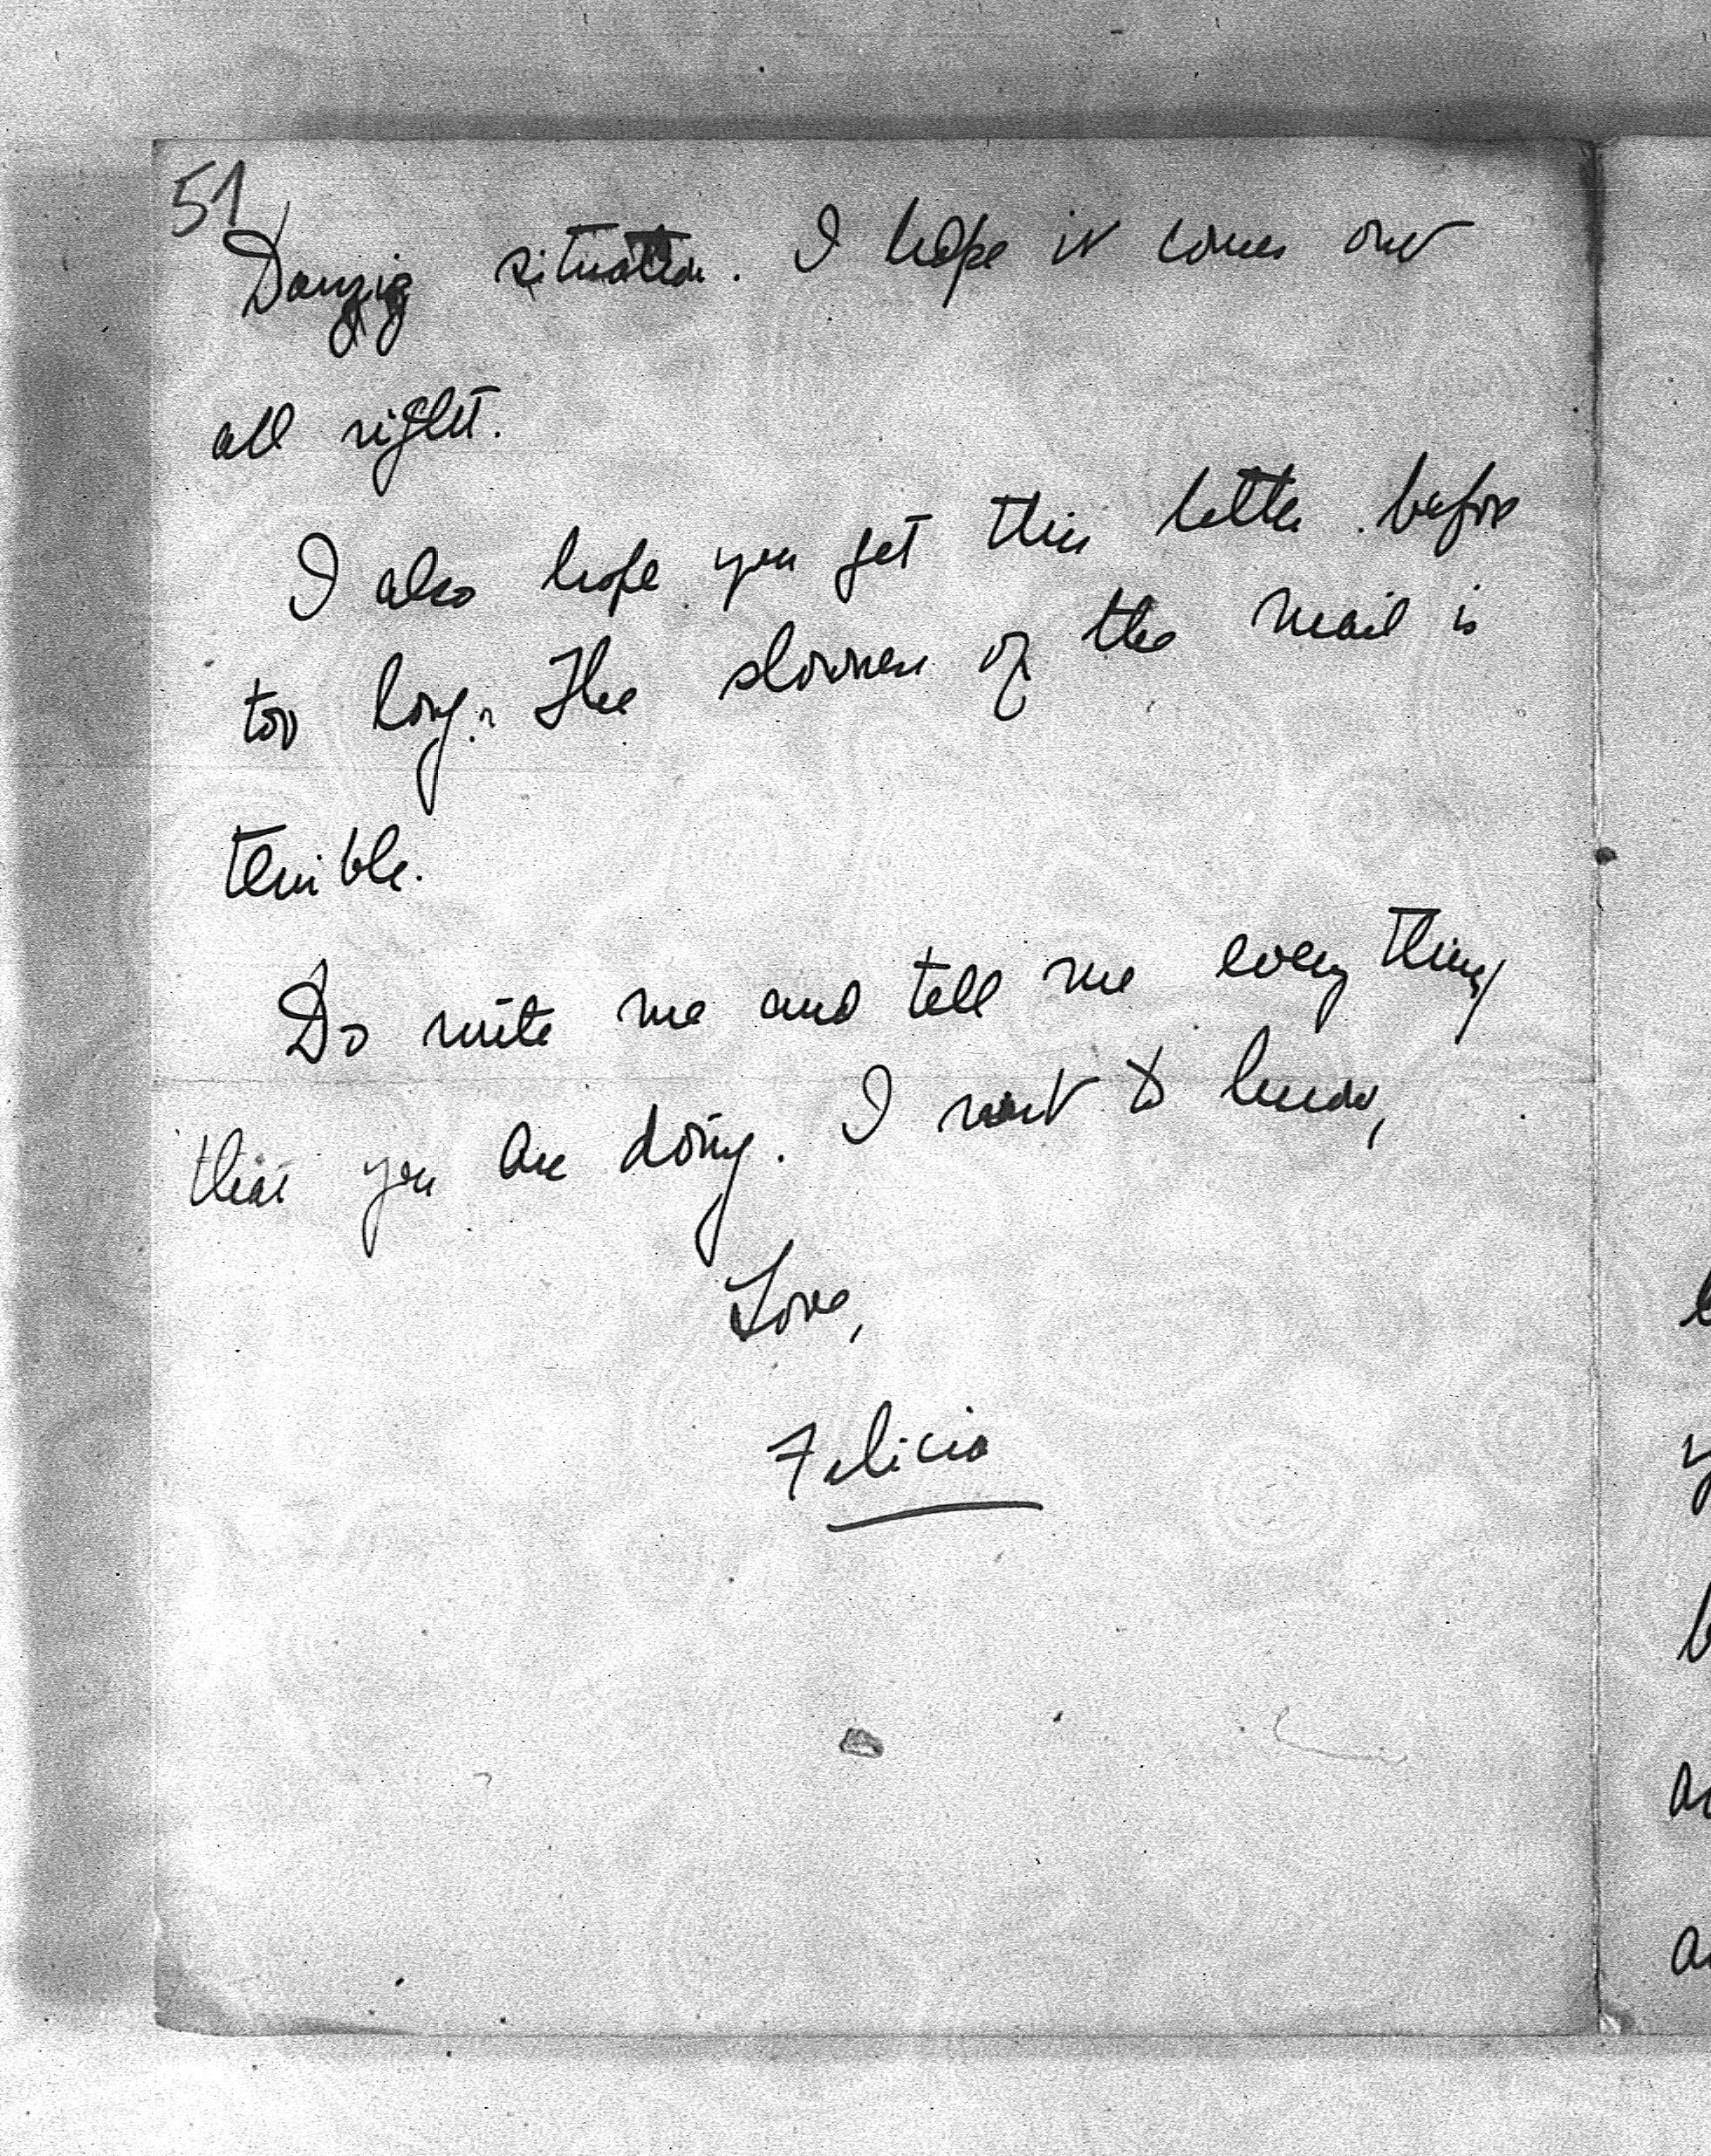 51
Danzig situation. I hope it comes out
all right.
I also hope you get this letter before
too long. The slowness of the mail is
terrible.
Do write me and tell me everything
that you are doing. I want to know,
Love,
Felicia